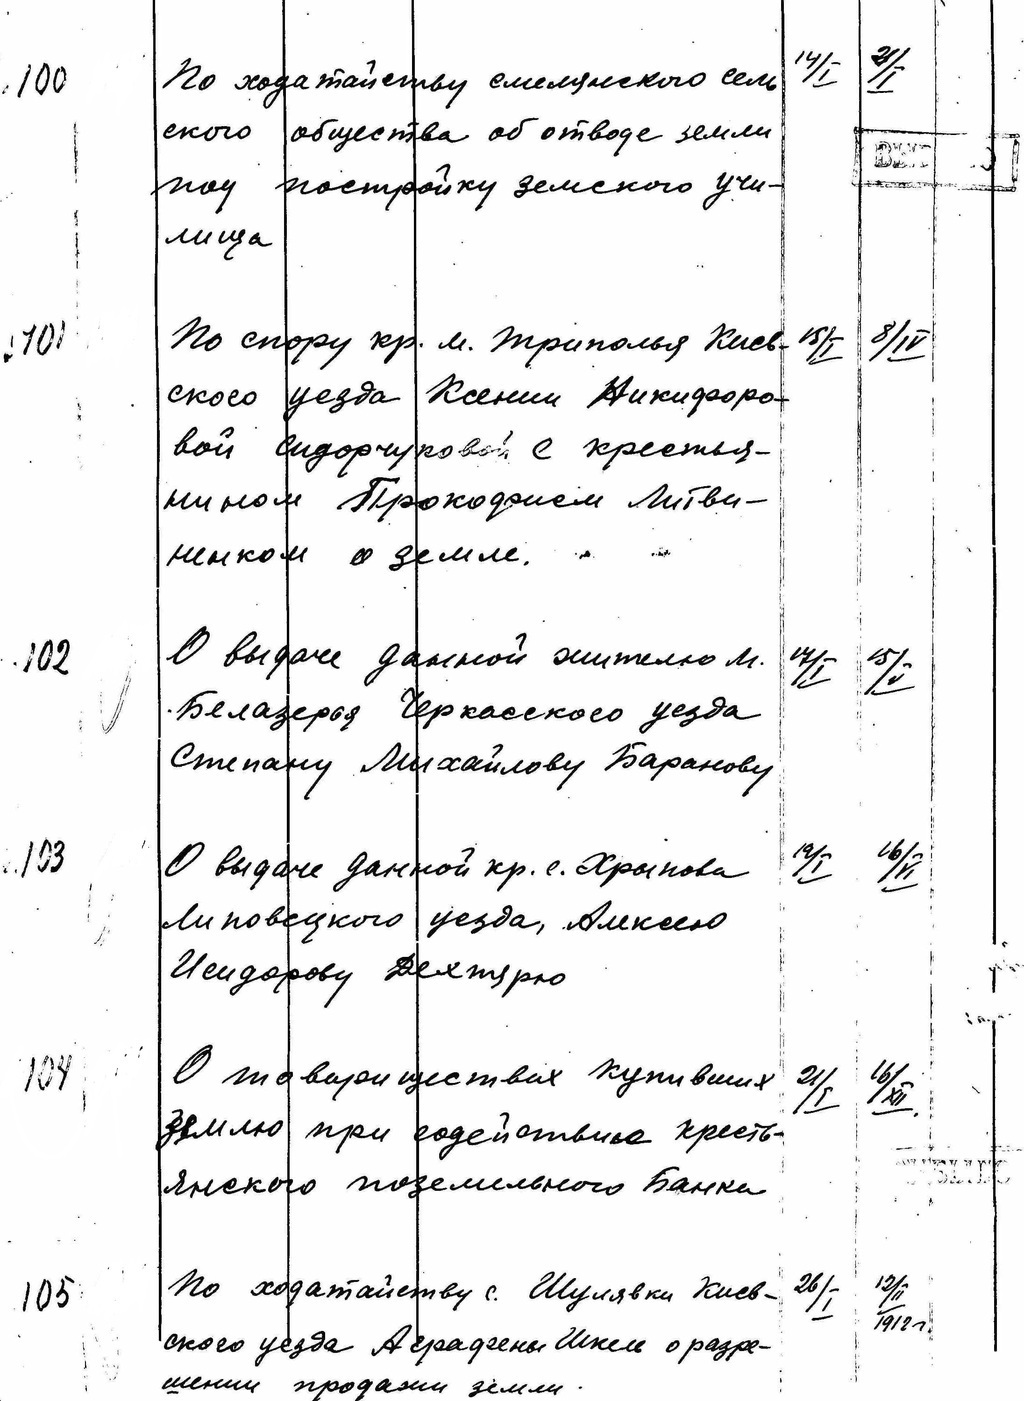 100 По ходатайству смелянского сель 14/I 21/I
ского общества об отводе земли
под постройку земского учи-
лища
101 По спору кр. м. Триполья Киев- 15/I 8/IV
ского уезда Ксении Никифоро-
вой Сидорчуковой с крестья-
нином Прокофием Литви-
ненком о земле.
102 О выдаче данной жителю м. 17/I 15/V
Белазерья Черкасского уезда
Степану Михайлову Баранову
103 О выдаче данной кр. с. Хрыпова 19/I 16/VI
Липовецкого уезда, Алексею
Исидорову Дехтярю
104 О товариществах купивших 21/I 16/XII.
землю при содействию кресть-
янского поземельного Банка
105 По ходатайству с. Шулявки Киев- 26/I 12/II
1912 г.
ского уезда Аграфены Шкель о разре-
шении продажи земли.